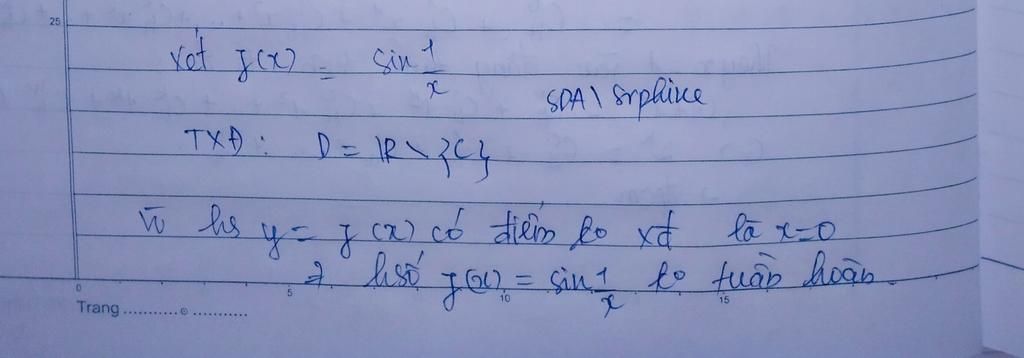 25
Xét f(x) = sin 1/x
SDA\ Srphine
TXĐ: D = ℝ \ {0}
Vì hs y = f(x) có điểm ko xđ là x=0
⇒ hsố f(x) = sin 1/x ko tuần hoàn.
0 5 10 15
Trang